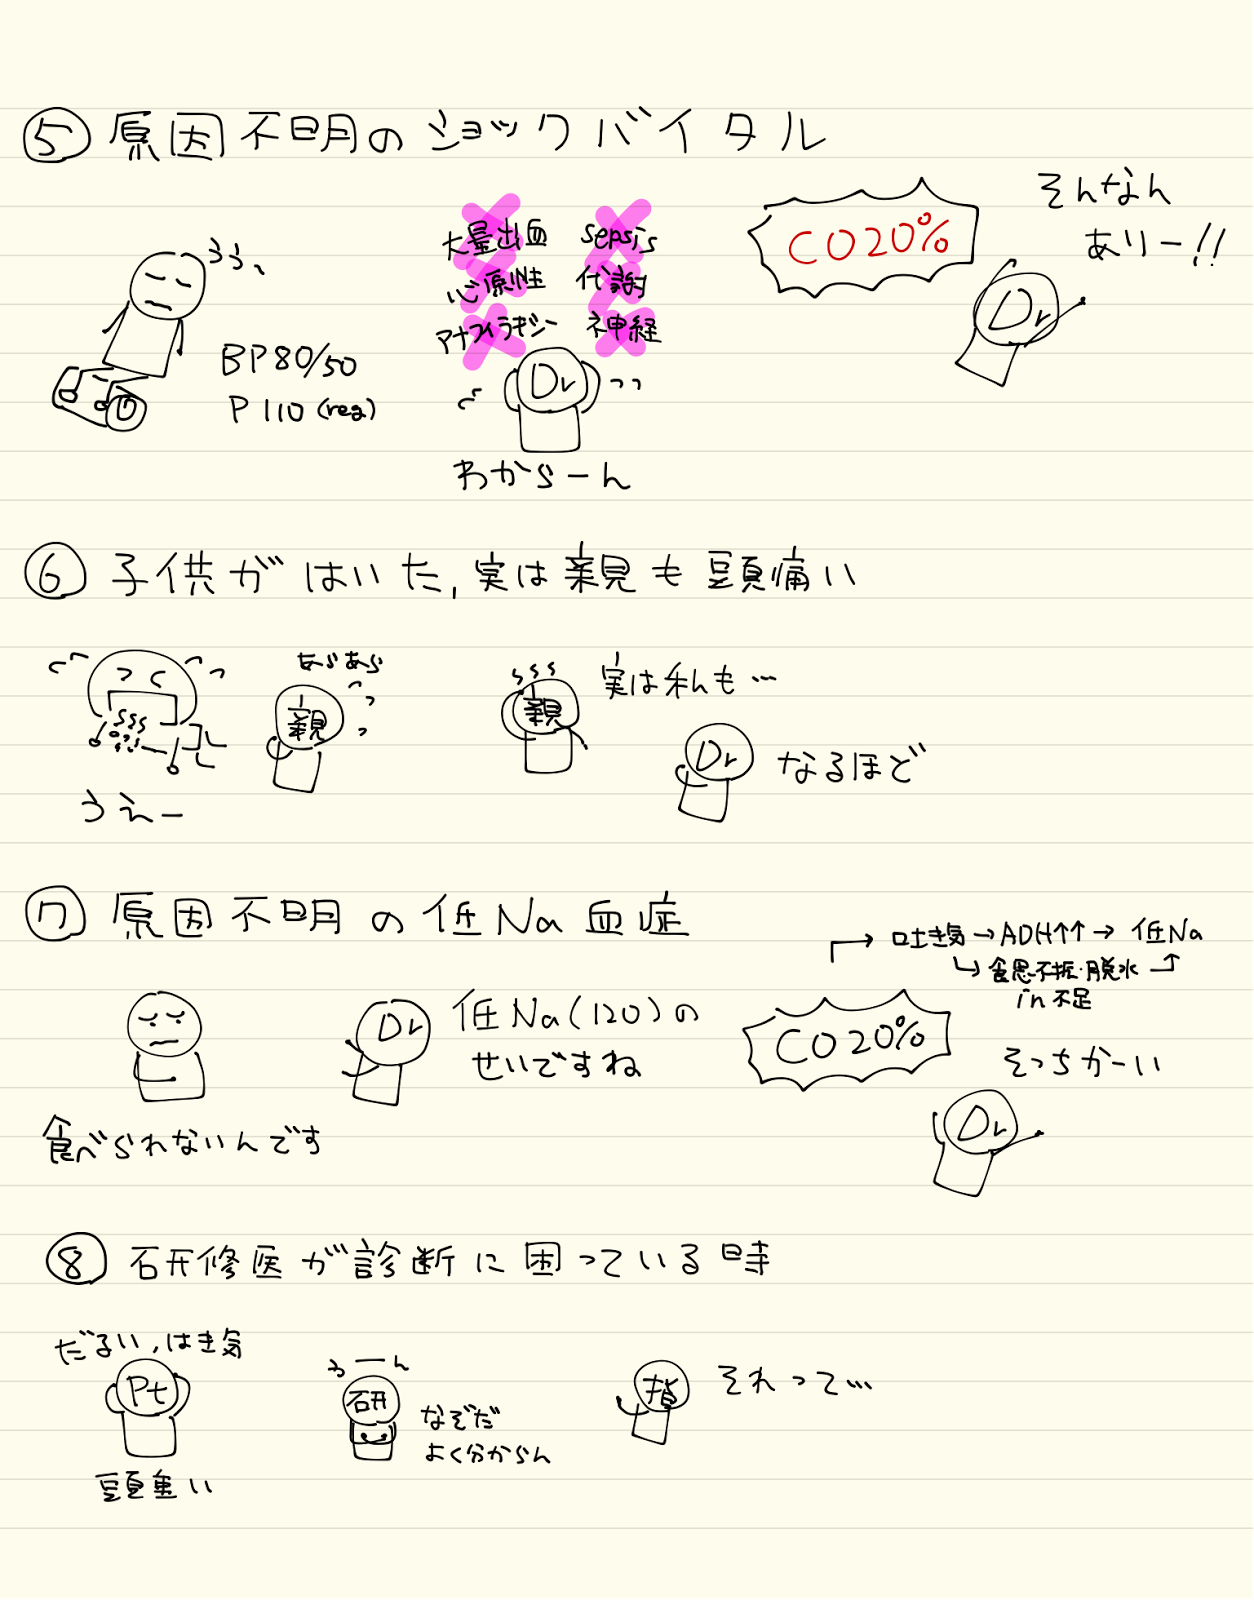 ⑤ 原因不明のショックバイタル
うう、
BP80/50
P110(reg)
大量出血 sepsis
心原性 代謝
アナフィラキシー 神経
Dr
わからーん
CO20%
そんなん
ありー!!
Dr
⑥ 子供がはいた,実は親も頭痛い
うえー
あらあら
親
親
実は私も…
Dr
なるほど
⑦ 原因不明の低Na血症
食べられないんです
Dr
低Na(120)の
せいですね
→吐き気→ADH↑↑→低Na
↳食思不振・脱水
in不足
CO20%
そっちかーい
Dr
⑧ 研修医が診断に困っている時
だるい,はき気
Pt
頭重い
うーん
研
なぞだ
よく分からん
指
それって…